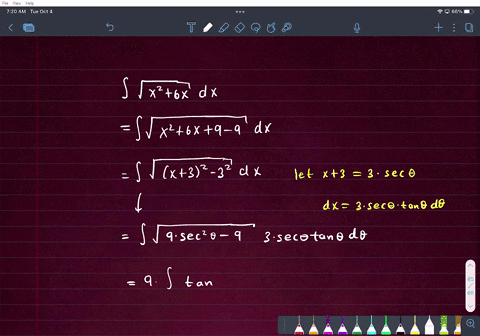 View Help
7:20 AM Tue Oct 4
66%
∫ √(x²+6x) dx
= ∫ √(x²+6x+9-9) dx
= ∫ √((x+3)²-3²) dx let x+3 = 3·secθ
↓ dx = 3·secθ·tanθ dθ
= ∫ √(9·sec²θ-9) 3·secθtanθ dθ
= 9·∫ tan